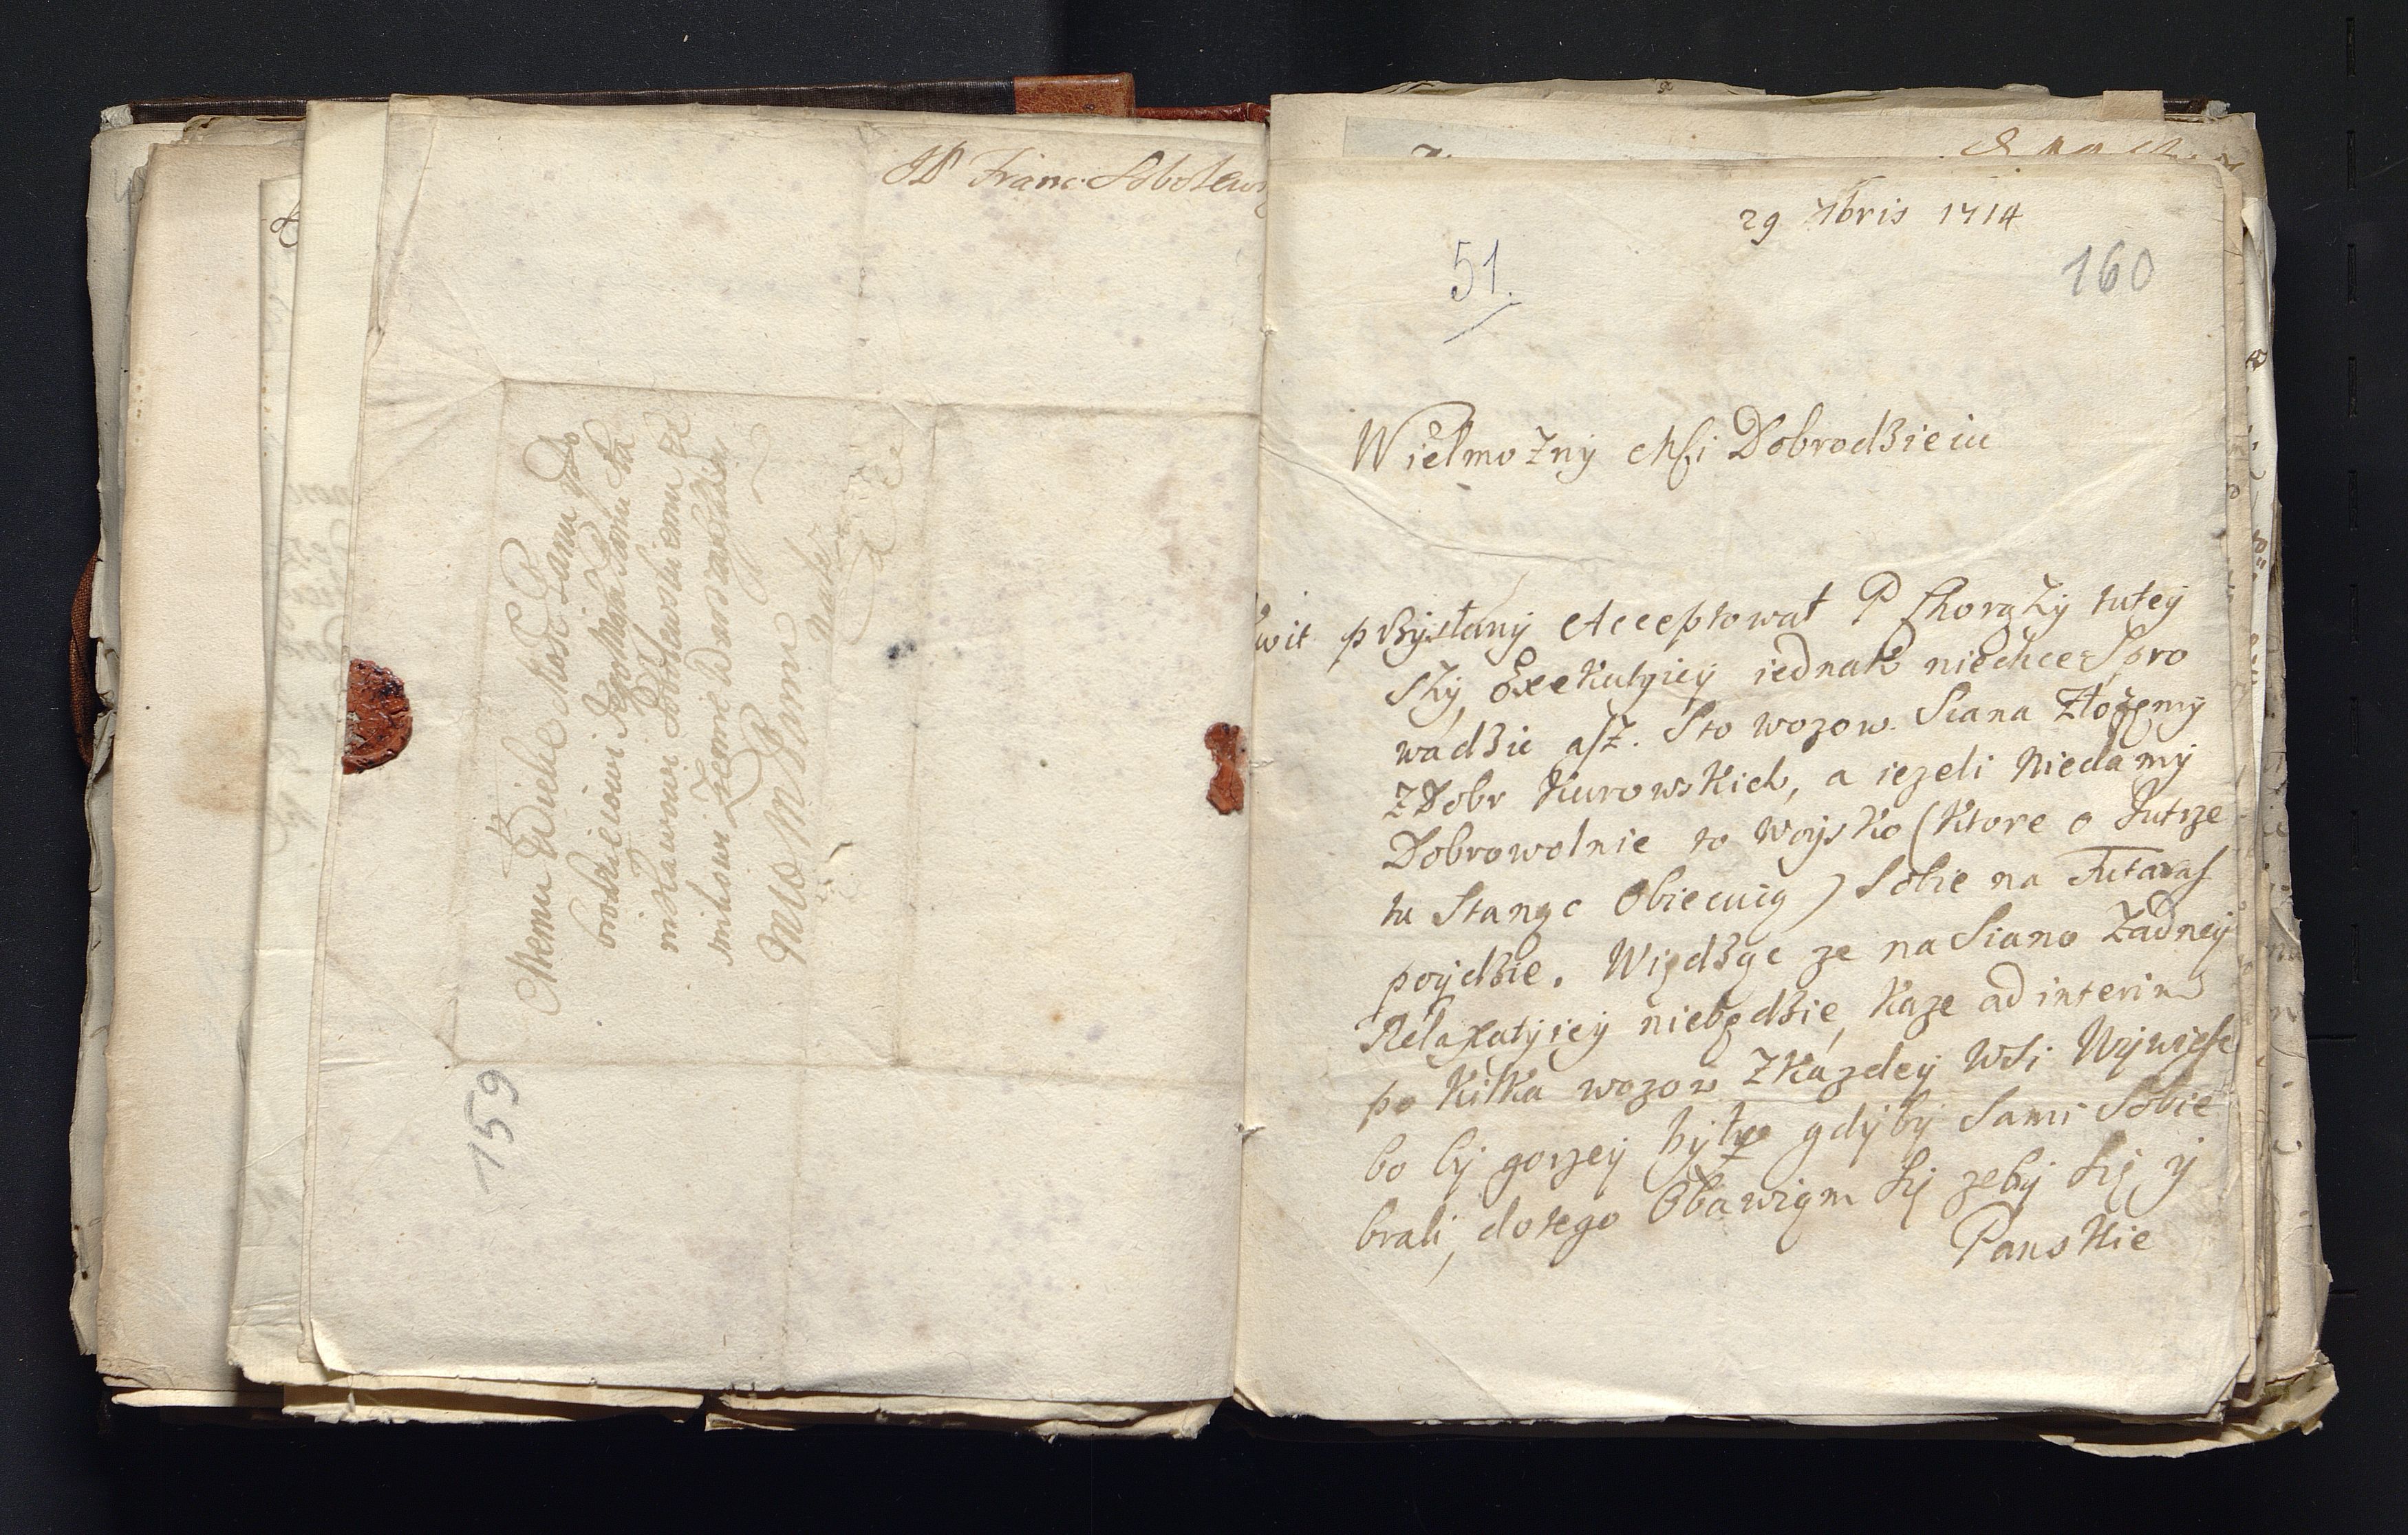 JP Franc. Sobolews
Memu Wielce Mosci Panu y Do
brodzieiowi Jegomosci Panu Sta
nisławowi Sobolewskiemu
mikowi Ziemi Warszawskiey
Mo M Panu
należy
159
29 7bris 1714
51.
160
Wielmożny Msci Dobrodzieiu
wit przysłany Acceptował P Chorąży tutey
szy, Exekutyiey iednak niechce Spro
wadzic asz. Sto wozow. Siana Złożemy
z Dobr Kurowskich, a iezeli niedamy
Dobrowolnie to woysko (ktore o Jutrze
tu Stanąc Obiecuią) Sobie na
poydzie. Więdząc ze na Siano Zadney
Relaxatyiey niebędzie, każe ad interim
po kilka wozow z każdey Wsi Wywiesc
bo by gorzey było gdyby Sami Sobie
brali, dotego Obawiąm Się zeby Się y
Panskie